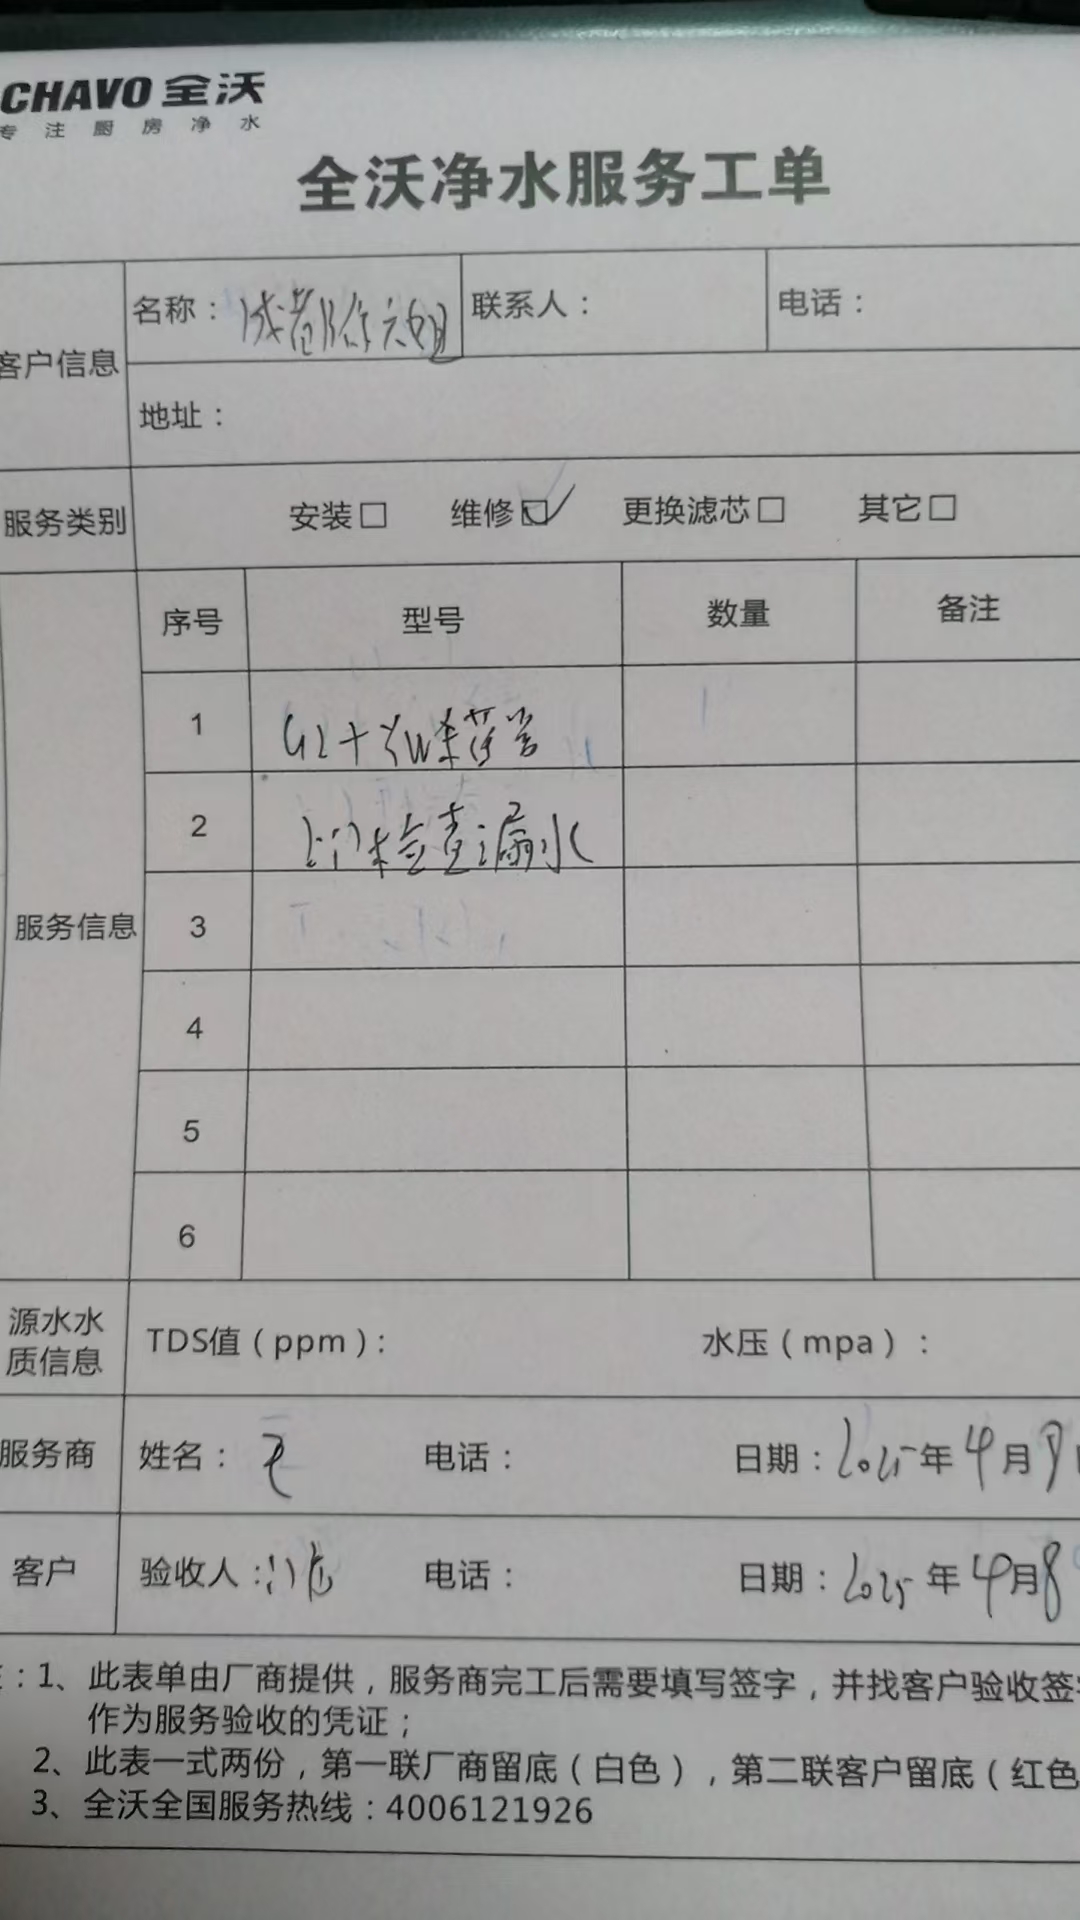 CHAVO 全沃
专注厨房净水
全沃净水服务工单
客户信息
名称： 联系人： 电话：
地址：
服务类别 安装□ 维修☑ 更换滤芯□ 其它□
服务信息
序号 型号 数量 备注
1
2 上门检查漏水
3
4
5
6
源水水质信息 TDS值（ppm）： 水压（mpa）：
服务商 姓名： 电话： 日期：2025年4月8
客户 验收人： 电话： 日期：2025年4月8
：1、此表单由厂商提供，服务商完工后需要填写签字，并找客户验收签
作为服务验收的凭证；
2、此表一式两份，第一联厂商留底（白色），第二联客户留底（红色
3、全沃全国服务热线：4006121926